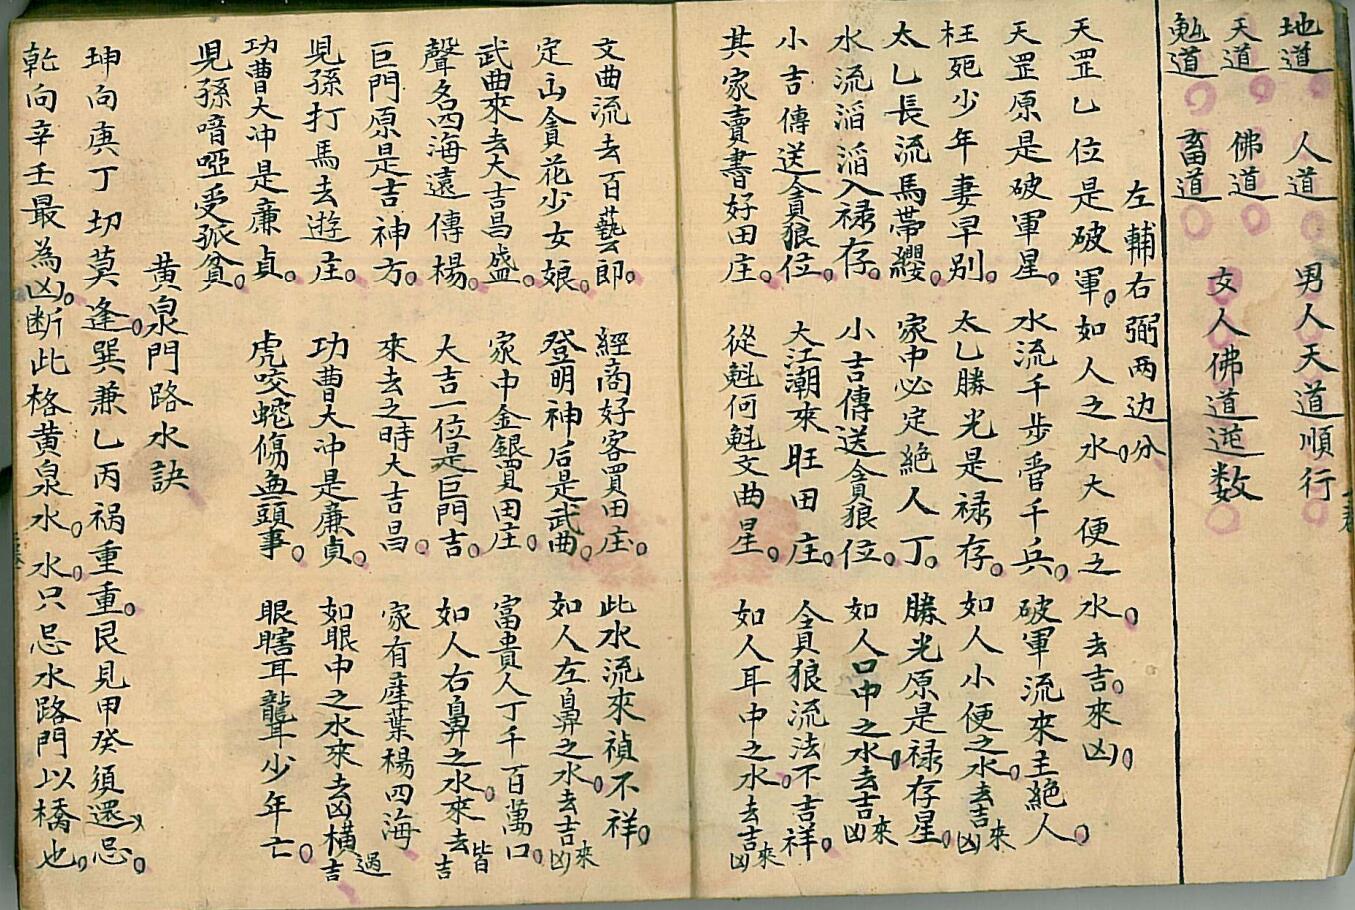 地道 人道 男人天道順行
天道 佛道 女人佛道逆数
道 畜道
左輔右弼两边分
天罡乚位是破軍如人之水大便之水去吉來凶
天罡原是破軍星 水流千步管千兵 破軍流來主絶人
枉死少年妻早别 太乚勝光是禄存 如人小便之水去吉來凶
太乚長流馬帶纓 家中必定絶人丁 勝光原是禄存星
水流滔滔入禄存 小吉傳送貪狼位 如人口中之水去吉來凶
小吉傳送貪狼位 大江潮來旺田庄 貪狼流法不吉祥
其家賣書好田庄 從魁何魁文曲星 如人耳中之水去吉來凶
文曲流去百藝郎 經商好客買田庄 此水流來禎不祥
定出貪花少女娘 登明神后是武曲 如人左鼻之水去吉來凶
武曲來去大吉昌盛 家中金銀買田庄 富貴人丁千百萬口
聲名四海遠傳楊 大吉一位是巨門吉 如人右鼻之水來去皆吉
巨門原是吉神方 來去之時大吉昌 家有產葉楊四海
児孫打馬去遊庄 功曹大冲是廉貞 如眼中之水來去凶横過吉
功曹大冲是廉貞 虎咬蛇傷無頭事 眼瞎耳聾少年亡
児孫喑啞受孤貧
黄泉門路水訣
坤向庚丁切莫逢巽兼乚丙祸重重艮見甲癸須還忌
乾向辛壬最為凶断此格黄泉水水只忌水路門以橋也